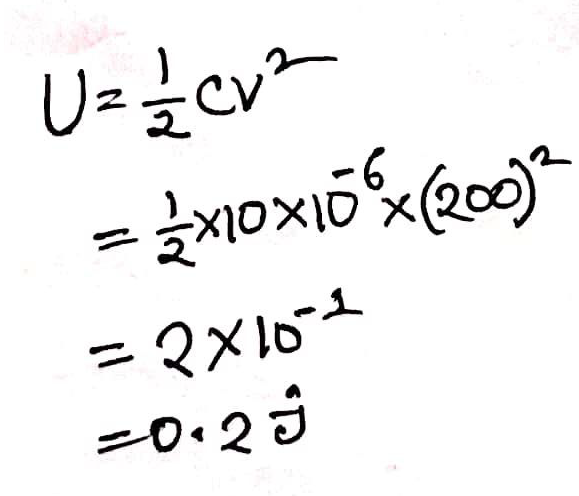 U = 1/2 CV²
= 1/2 × 10 × 10⁻⁶ × (200)²
= 2 × 10⁻¹
= 0.2 J